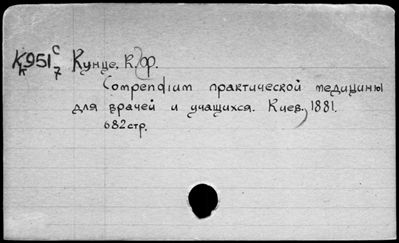 К951 С/7 Кунце, К. Ф.
к
Compendium практической медицины
для врачей и учащихся. Киев, 1881.
682 стр.